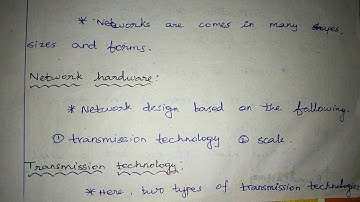 * Networks are comes in many shapes,
sizes and forms.
Network hardware:
* Network design based on the following.
① transmission technology ② scale.
Transmission technology:
* Here, two types of transmission technologies